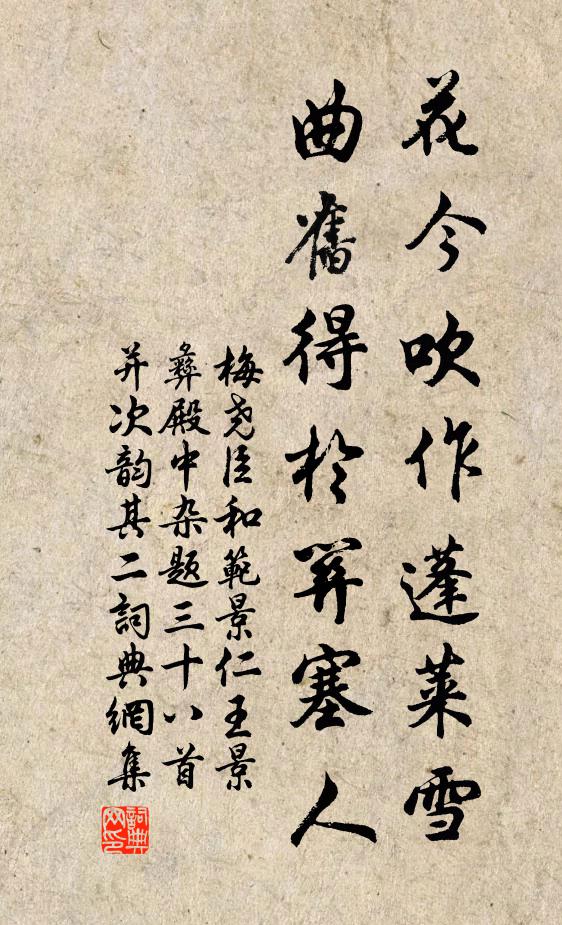 花今吹作蓬萊雪
曲舊得於塞人
梅尧臣和範景仁王景
彝殿中杂题三十八首
并次韵其二詞典網集
詞典网印